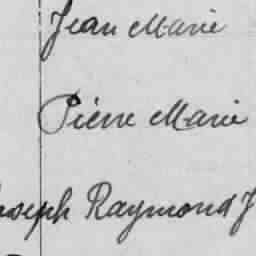 Jean Marie
Pierre Marie
Joseph Raymond J